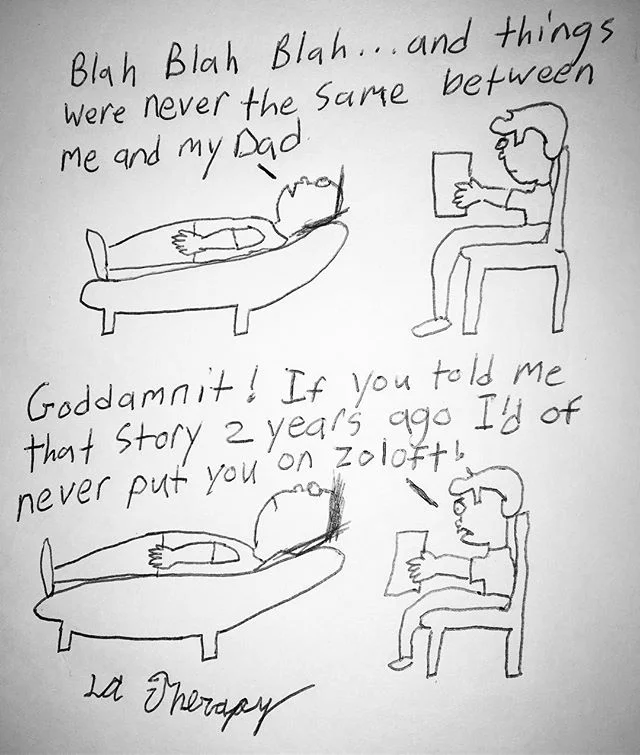 Blah Blah Blah...and things
were never the same between
me and my Dad
Goddamnit! If you told me
that story 2 years ago I'd of
never put you on zoloft!
LA Therapy